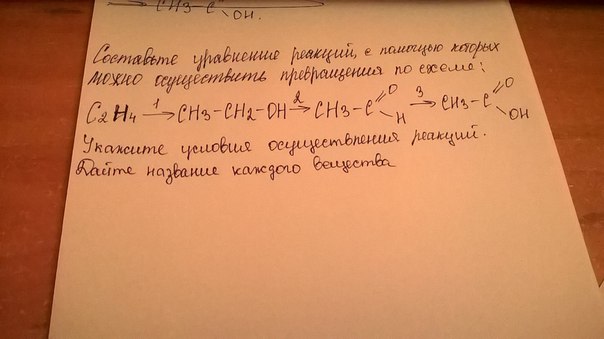 CH3-C
OH.
Составьте уравнение реакций, с помощью которых
можно осуществить превращения по схеме:
C2H4 1→ CH3-CH2-OH 2→ CH3-C=O H 3→ CH3-C=O OH
Укажите условия осуществления реакций.
Дайте название каждого вещества